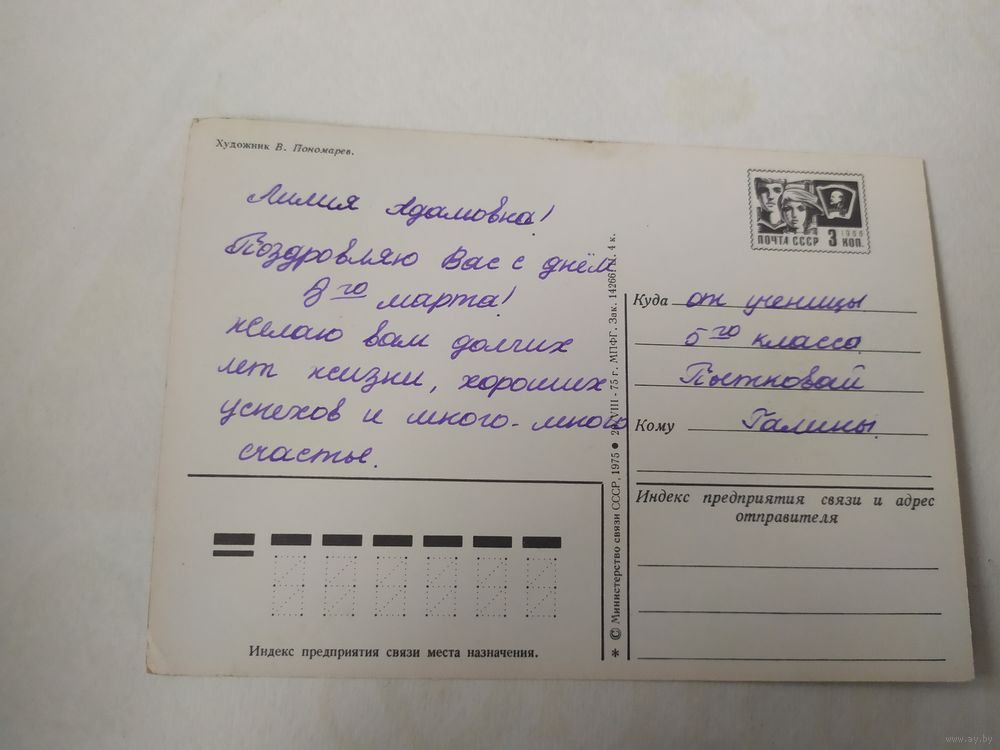 Художник В. Пономарев.
Лилия Адамовна!
Поздровляю Вас с днём
8го марта!
желаю вам долгих
лет жизни, хороших
успехов и много-много
счастье.
ПОЧТА СССР 3 КОП.
1966
Куда от ученицы
5го класса
Пытновай
Кому Галины.
Индекс предприятия связи и адрес
отправителя
Индекс предприятия связи места назначения.
* © Министерство связи СССР, 1975 ● VIII-75 г. МПФГ. Зак. 4 к.
www.ay.by